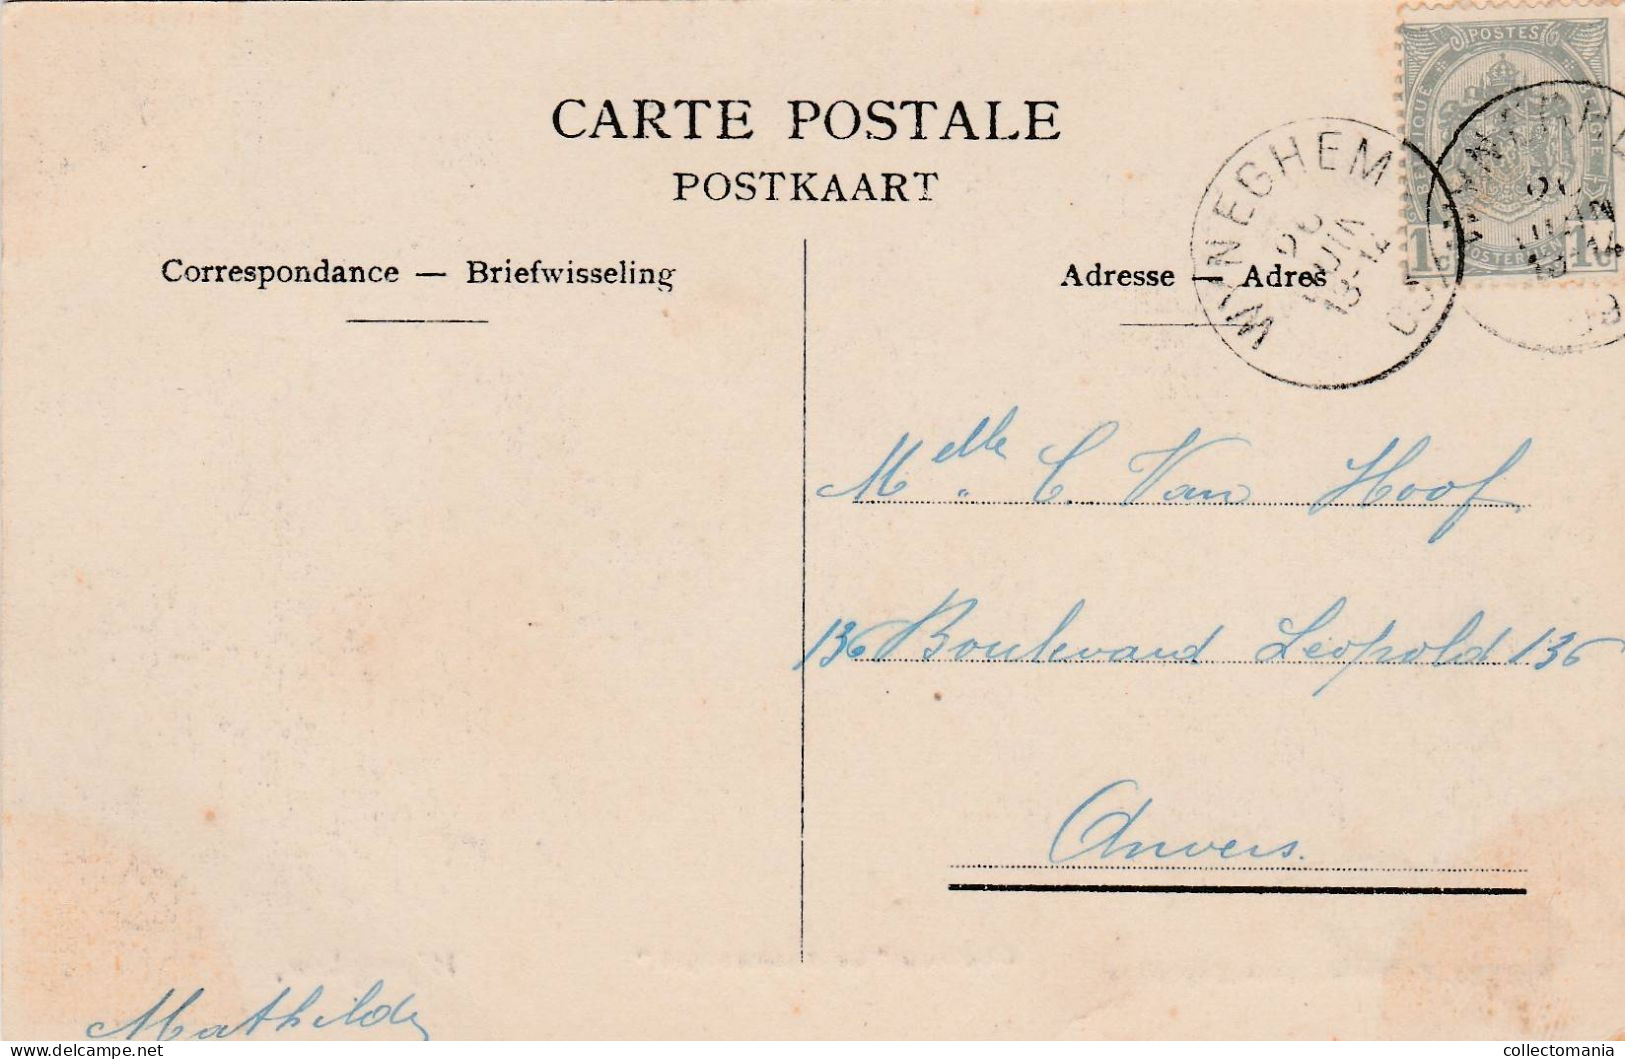 CARTE POSTALE
POSTKAART
Correspondance — Briefwisseling
Adresse — Adres
POSTES
BELGIQUE
1 c
1
WYNEGHEM
26
JUIN
13-14
08
Melle. C. Van Hoof.
136 Boulevard Leopold 136
Anvers.
Mathilde
delcampe.net
collectomania